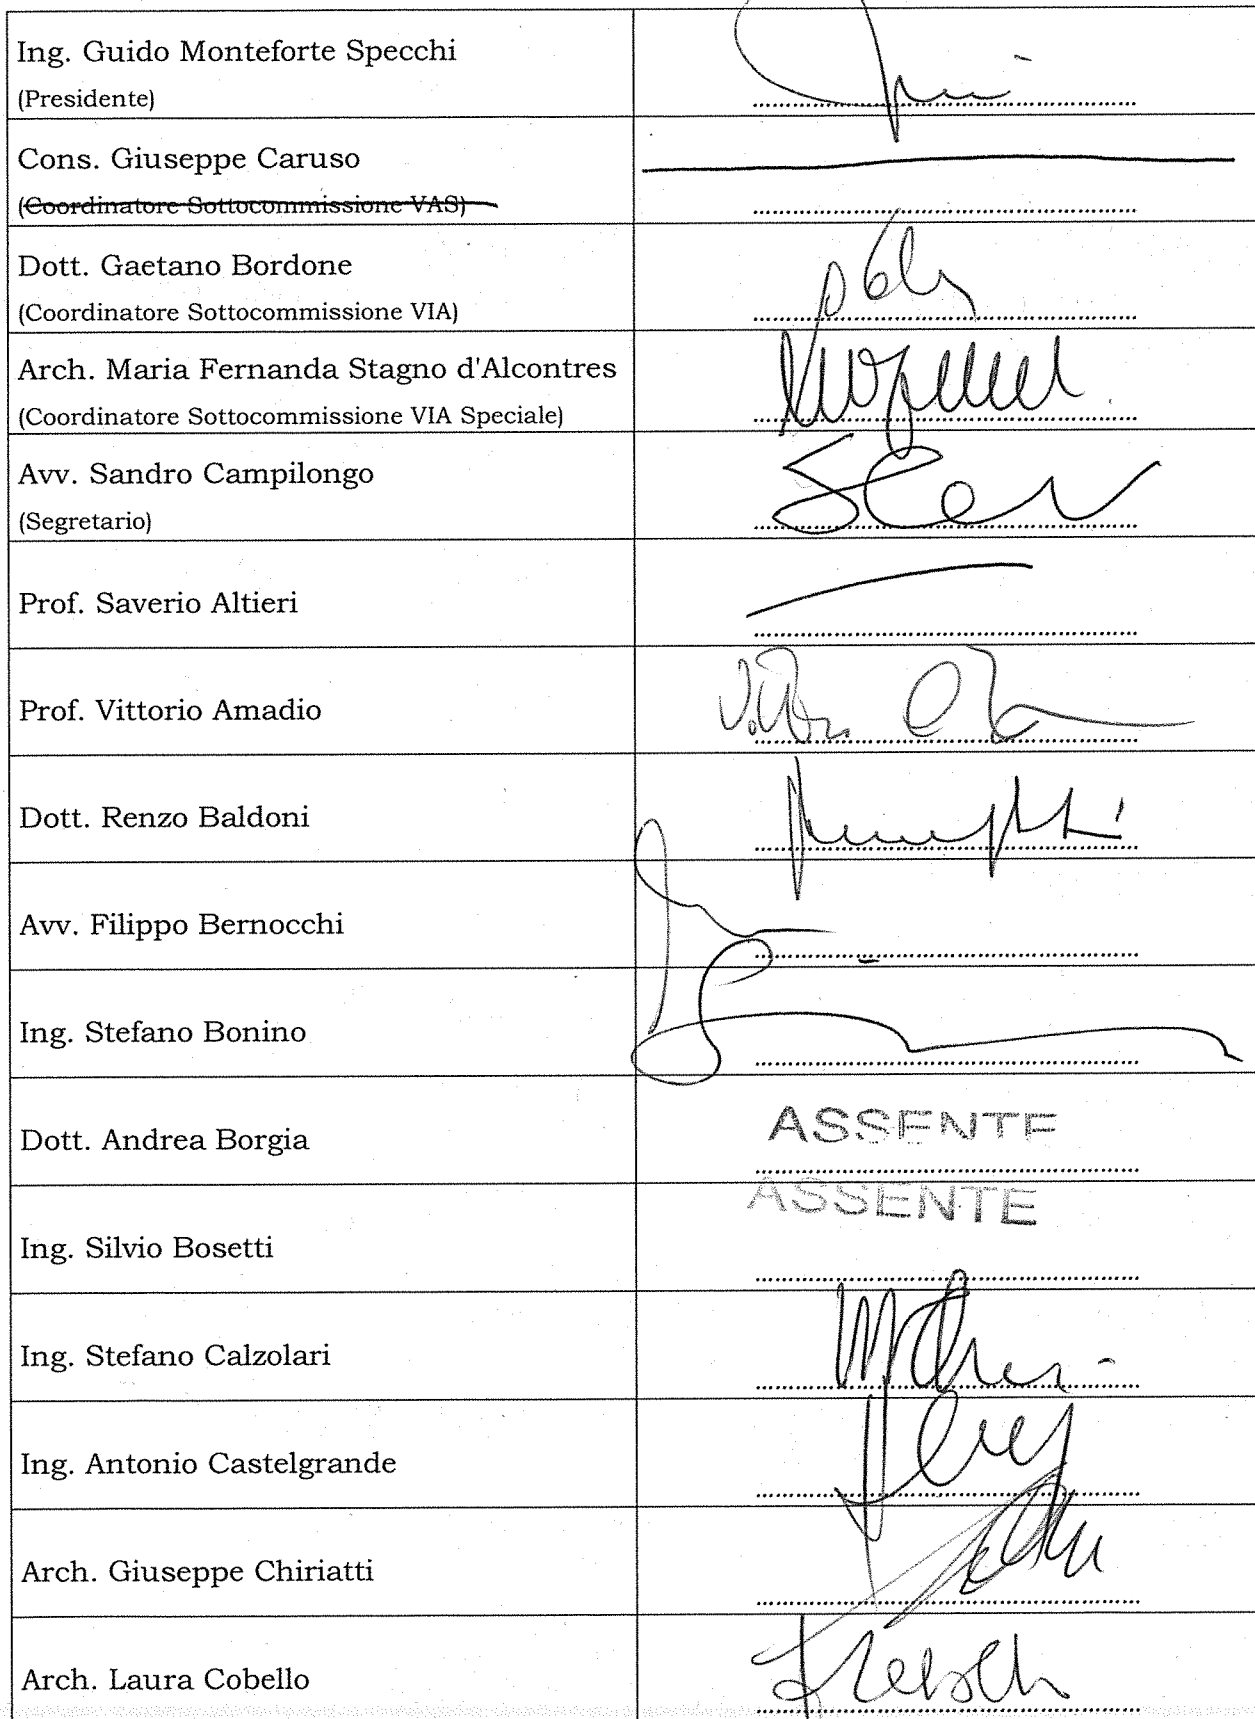 Ing. Guido Monteforte Specchi
(Presidente)
Cons. Giuseppe Caruso
(Coordinatore Sottocommissione VAS)
Dott. Gaetano Bordone
(Coordinatore Sottocommissione VIA)
Arch. Maria Fernanda Stagno d'Alcontres
(Coordinatore Sottocommissione VIA Speciale)
Avv. Sandro Campilongo
(Segretario)
Prof. Saverio Altieri
Prof. Vittorio Amadio
Dott. Renzo Baldoni
Avv. Filippo Bernocchi
Ing. Stefano Bonino
Dott. Andrea Borgia
ASSENTE
ASSENTE
Ing. Silvio Bosetti
Ing. Stefano Calzolari
Ing. Antonio Castelgrande
Arch. Giuseppe Chiriatti
Arch. Laura Cobello